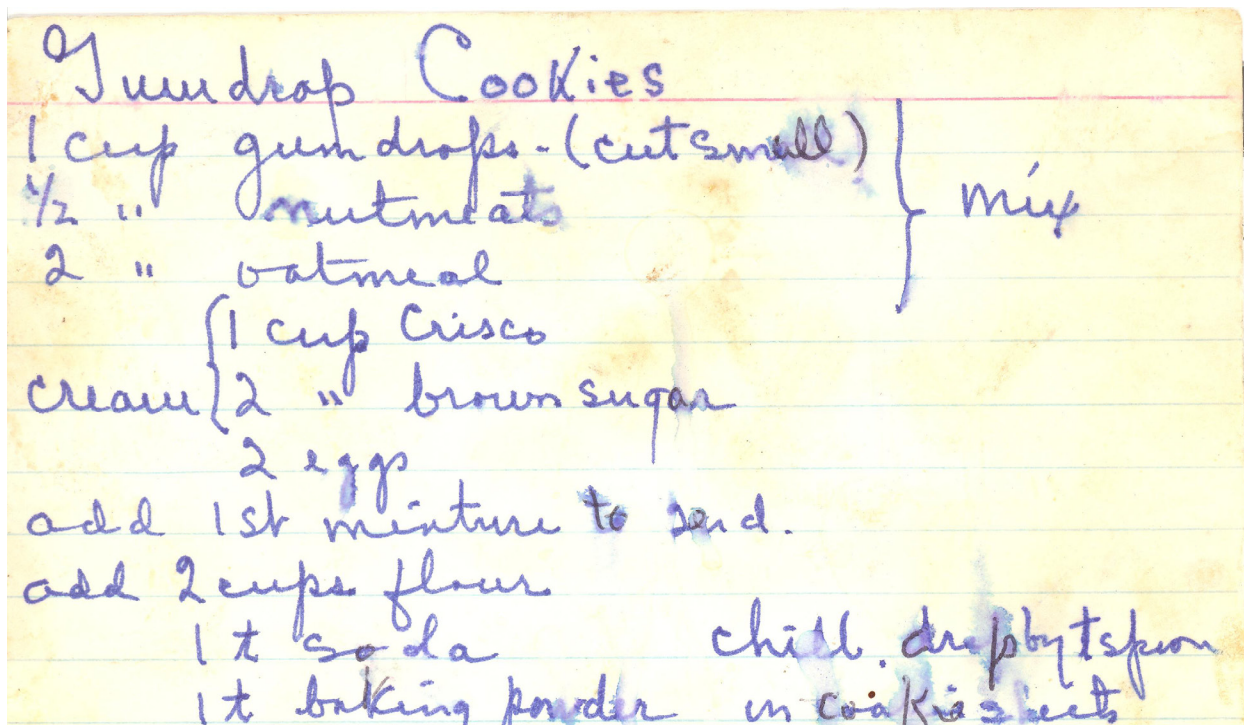 Gumdrop Cookies
1 cup gumdrops - (cut small)
1/2 " nutmeats
2 " oatmeal
mix
1 cup Crisco
cream 2 " brown sugar
2 eggs
add 1st mixture to
add 2 cups flour
1 t soda
1 t baking powder
chill. drop by tspoon
on cookie sheets